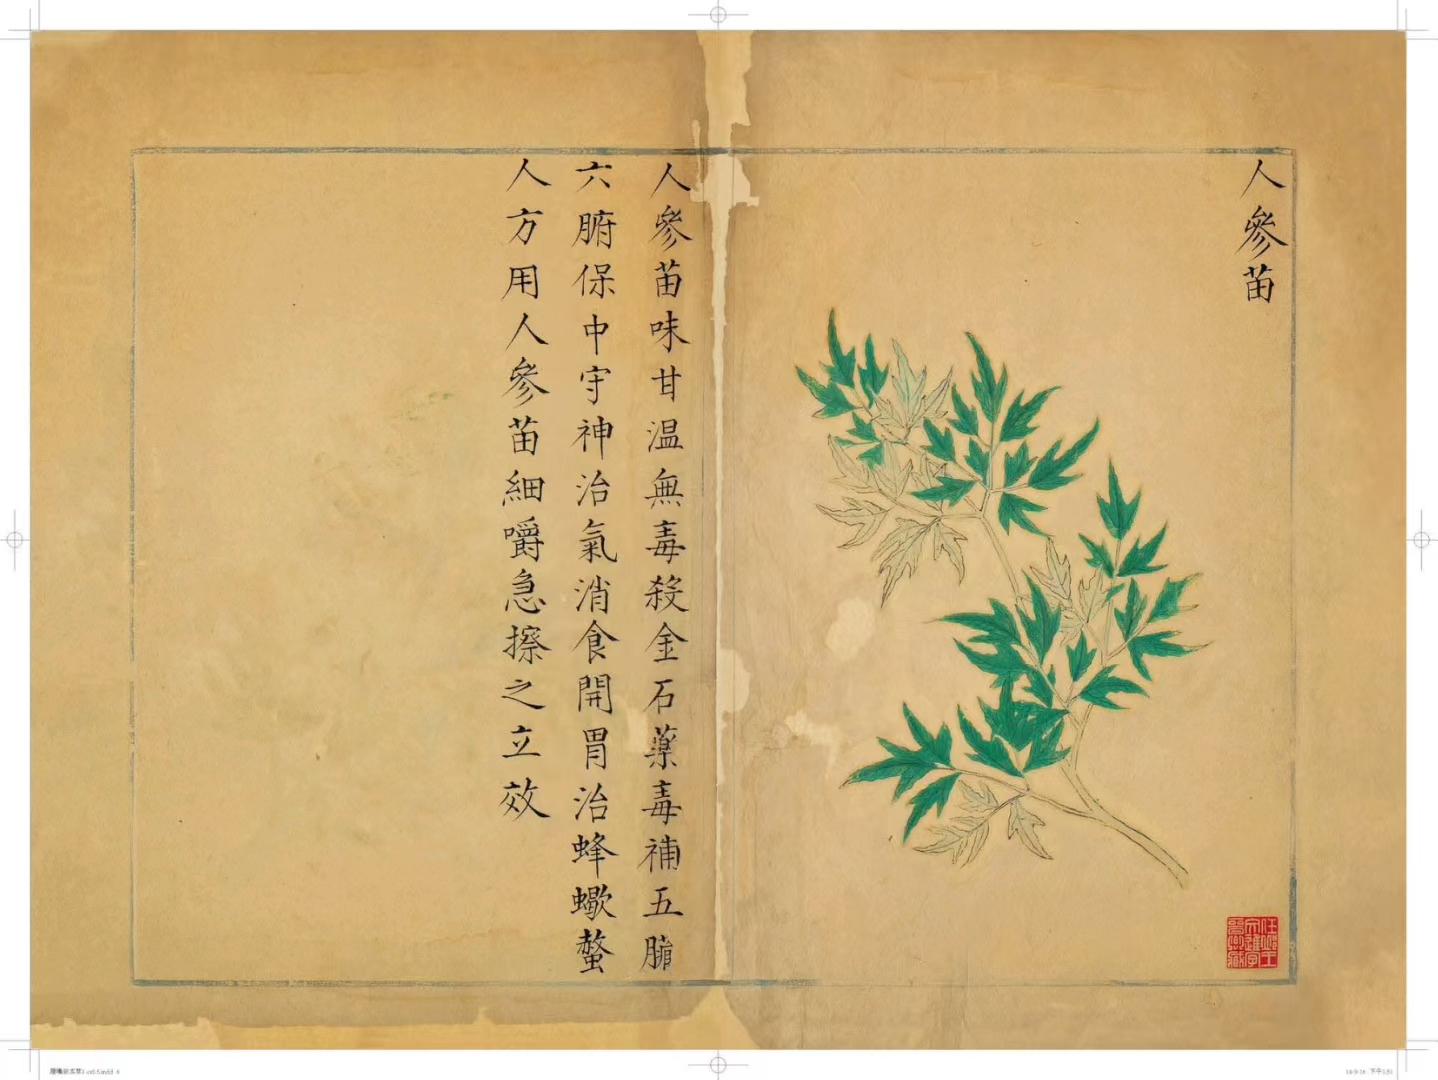 人參苗
人參苗味甘溫無毒殺金石藥毒補五臟
六腑保中守神治氣消食開胃治蜂蠍螫
人方用人參苗細嚼急擦之立效